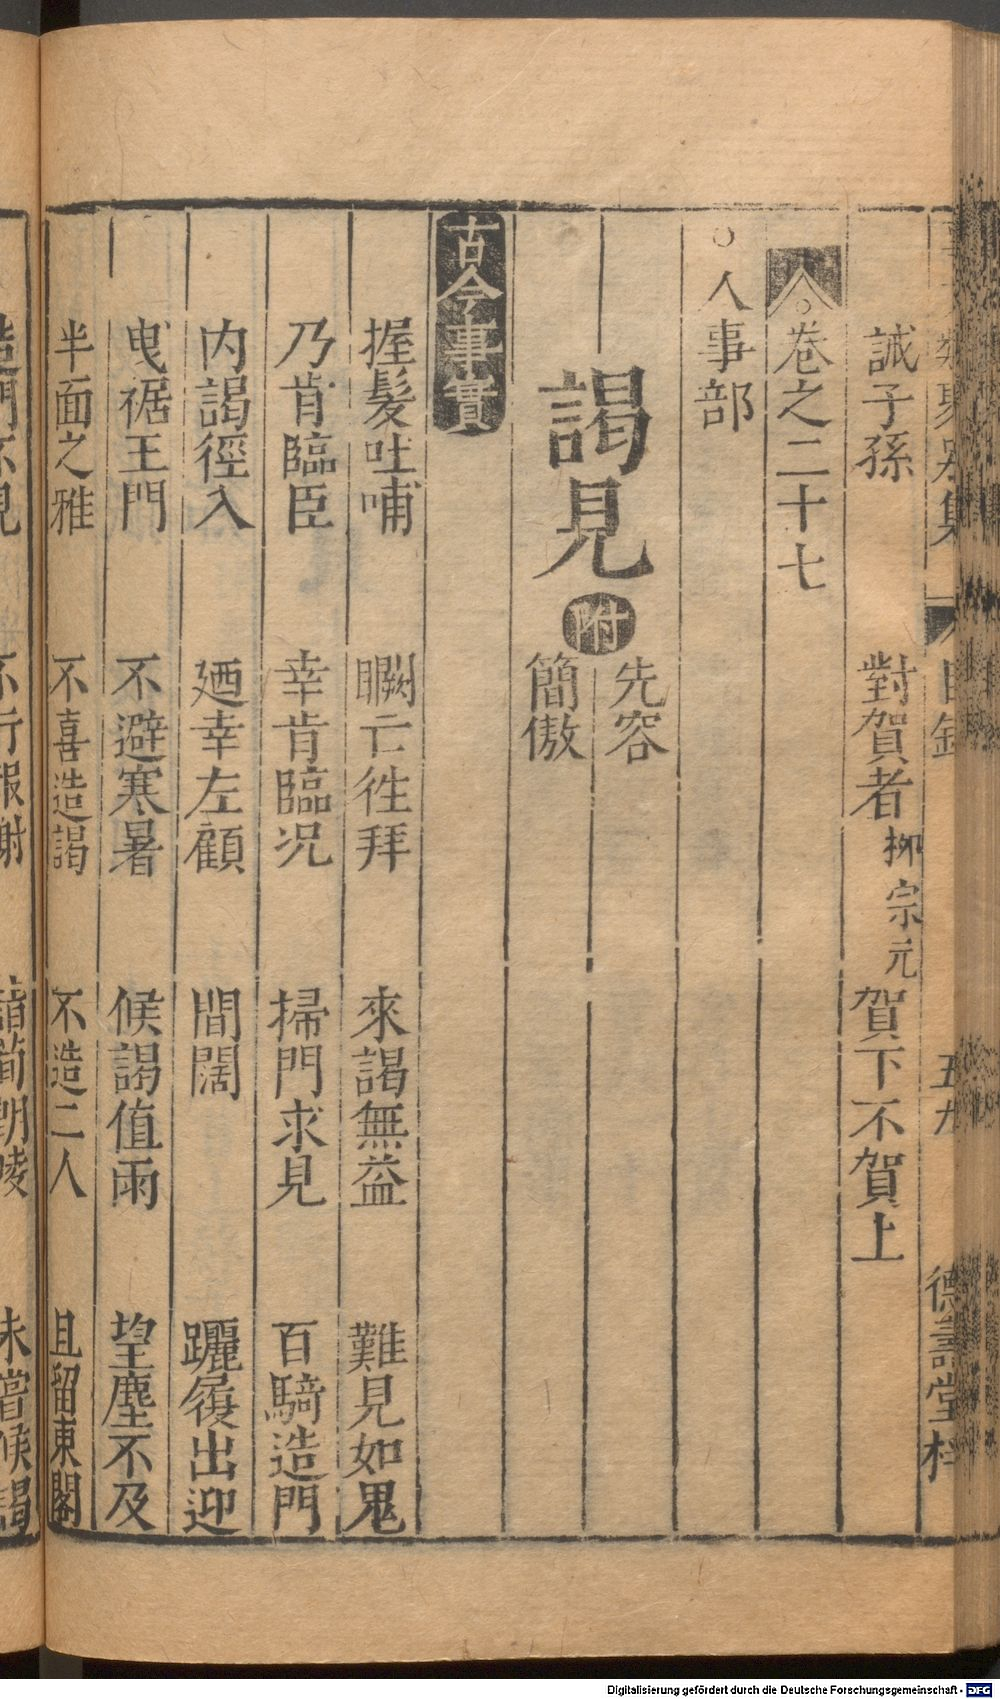 類聚別集 目錄 五九 德壽堂梓
誡子孫 對賀者 柳宗元 賀下不賀上
卷之二十七
○人事部
謁見 附 先容 簡傲
古今事實
握髮吐哺 瞯亡徃拜 來謁無益 難見如鬼
乃肯臨臣 幸肯臨况 掃門求見 百騎造門
内謁徑入 廼幸左顧 間闊 躧履出迎
曳裾王門 不避寒暑 候謁值雨 望塵不及
半面之雅 不喜造謁 不造二人 且留東閣
造門不見 不行報謝 詣荀朗陵 未嘗候謁
Digitalisierung gefördert durch die Deutsche Forschungsgemeinschaft - DFG